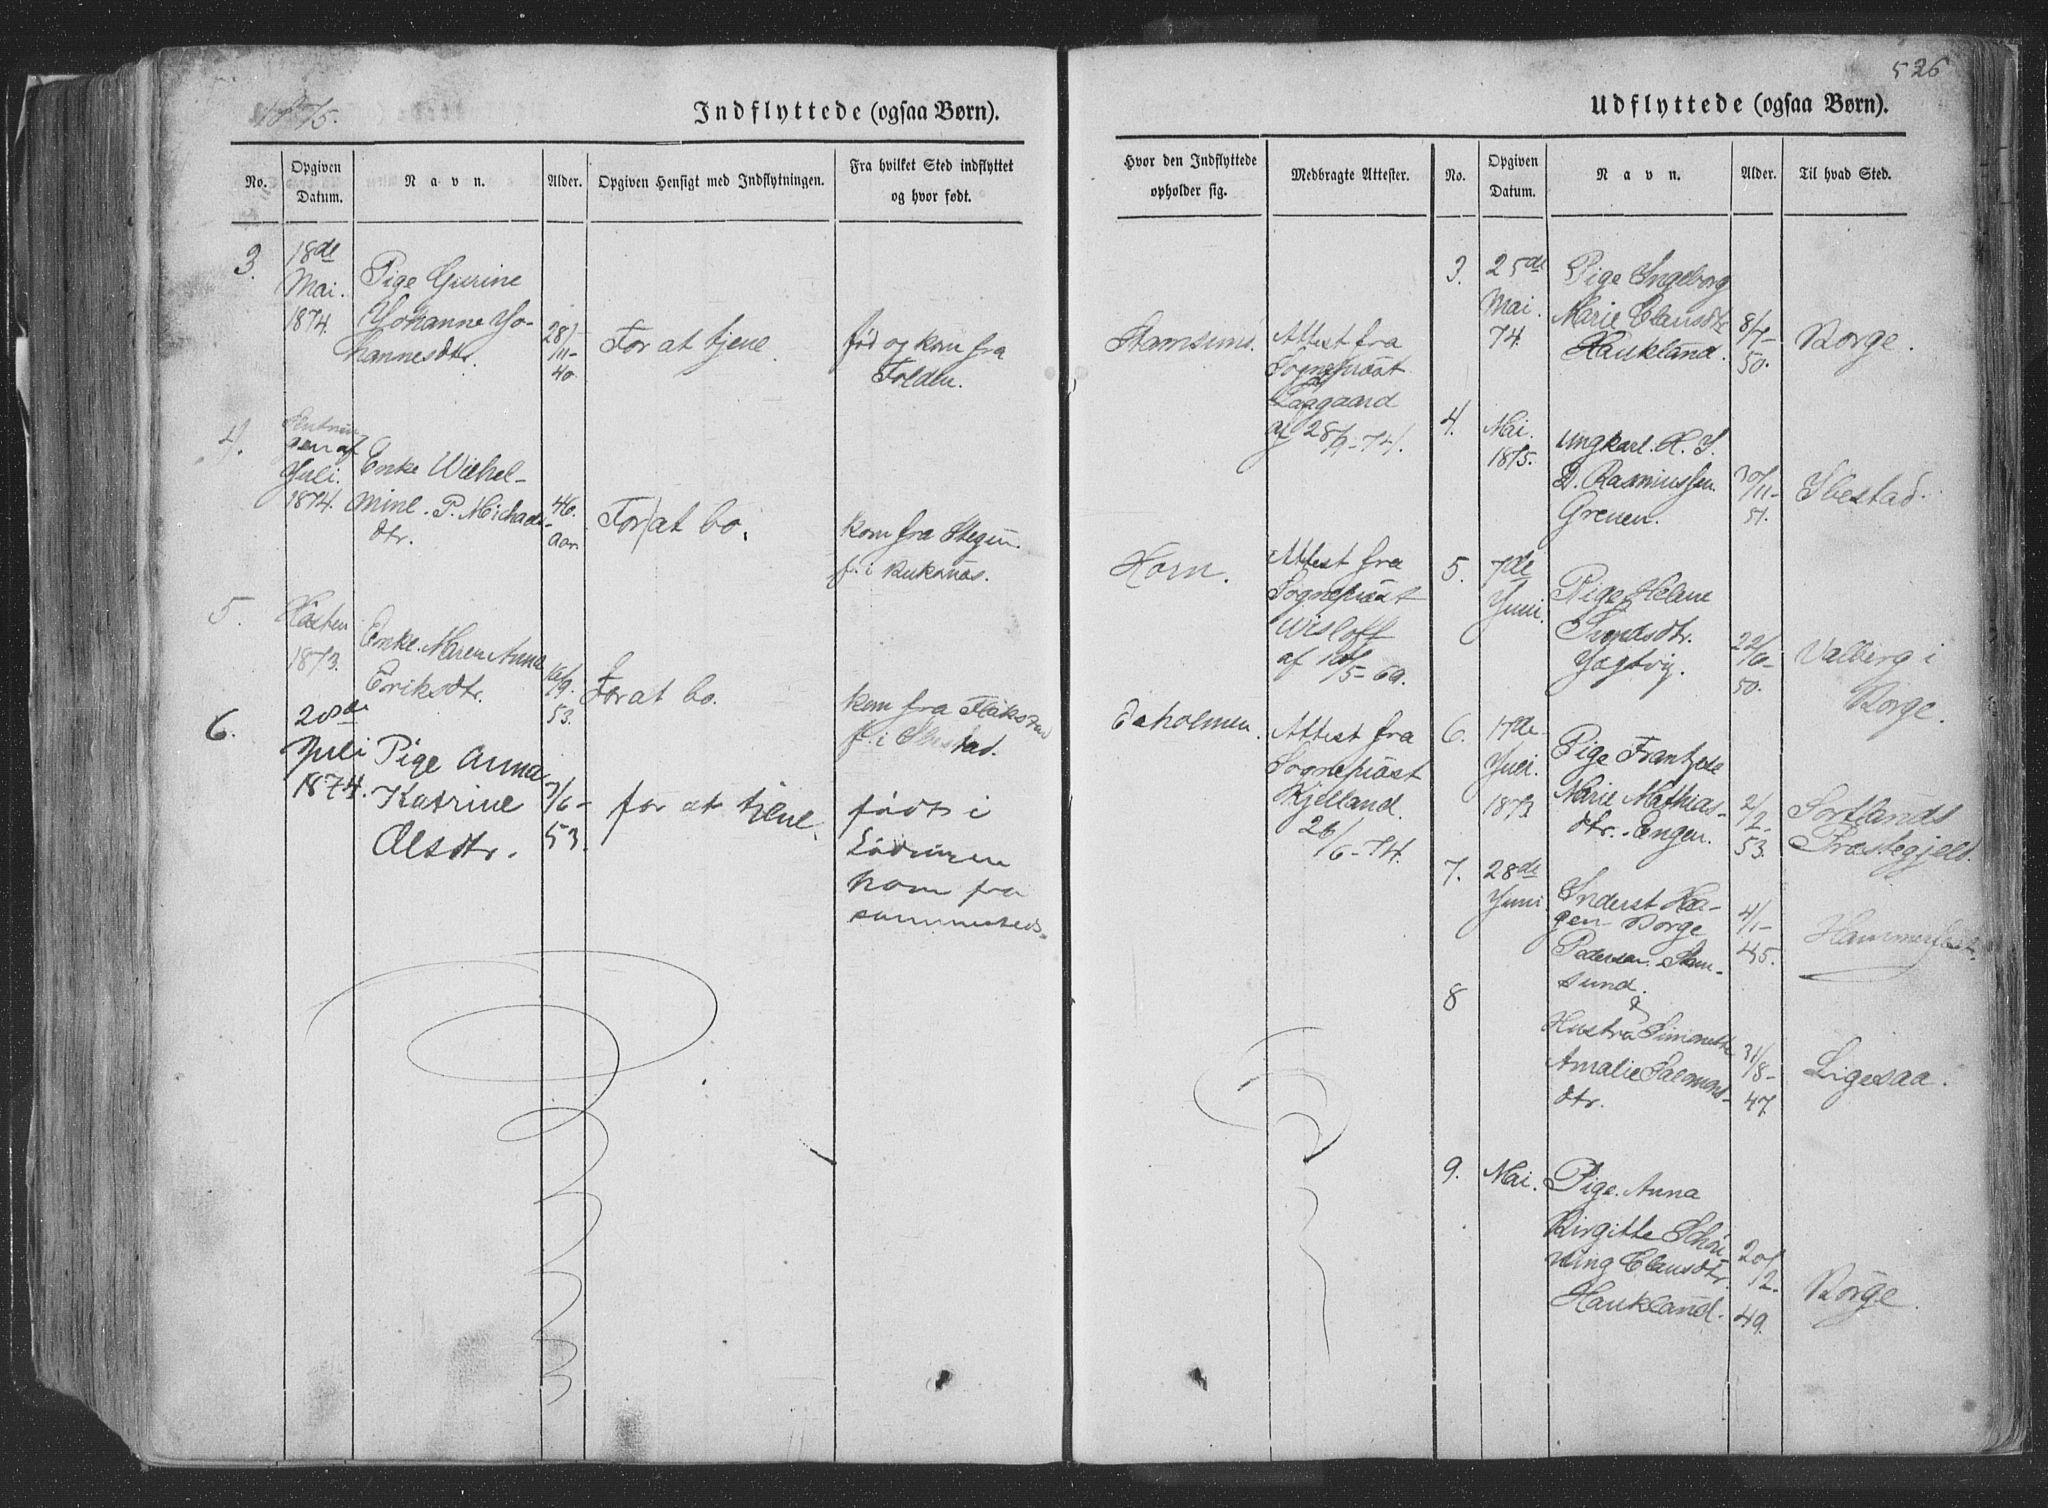 1875.
Indflyttede (ogsaa Børn).
No.
Opgiven Datum.
Navn.
Alder.
Opgiven Hensigt med Indflytningen.
Fra hvilket Sted indflyttet og hvor født.
3.
18de
Mai.
1874.
Pige Gurine
Johanne Jo-
hannesdtr.
28/
11-
40.
For at tjene.
fød og kom fra
Folden.
4.
gen af
Juli.
1874.
Enke Wilhel-
mine. P. Michaels-
dtr.
46.
aar.
For at bo.
kom fra Stegen.
f. i Buksnæs.
5.
Høsten
1873.
Enke. Maren Anna
Eriksdtr.
16/
9.
53.
For at bo.
kom fra
f. i
6.
20de
Juli
1874.
Pige Anna
Katrine
Olsdtr.
7/
6-
53.
for at tjene.
født i
Lødingen
kom fra
sammesteds.
526
Udflyttede (ogsaa Børn).
Hvor den Indflyttede opholder sig.
Medbragte Attester.
No.
Opgiven Datum.
Navn.
Alder.
Til hvad Sted.
Stamsund.
Attest fra
Sognepræst
Aagaard
af 28/4-74.
Horn.
Attest fra
Sognepræst
Wisløff
af 10/5-69.
Æsholmen.
Attest fra
Sognepræst
Kjelland.
26/
6-74.
3.
25de
Mai.
74.
Pige Ingeborg
Marie Clausdtr
Haukland.
8/
7-
50.
Borge.
4.
Mai.
1875.
Ungkarl. H. J.
D. Rasmussen.
Grenen.
30/
11-
51.
Ibestad.
5.
7de
Juni.
Pige Helene
Jagtvig.
22/
6-
50.
Valberg i
Borge.
6.
17de
Juli.
1873.
Pige Frantzese
Marie Mathias-
dtr. Engen.
2/
2-
53.
Sortlands
Præstegjeld.
7.
28de
Juni
Inderst Haa-
gen Borge
Pedersen. Stam-
sund.
4/
1-
45.
Hammerfest.
8
&
Hustru Simonette
Amalie Salomons-
dtr.
31/
8-
47.
Ligesaa.
9.
Mai.
Pige. Anna
Birgitte Schøn-
ning Clausdtr.
Haukland.
20/
12-
49.
Borge.